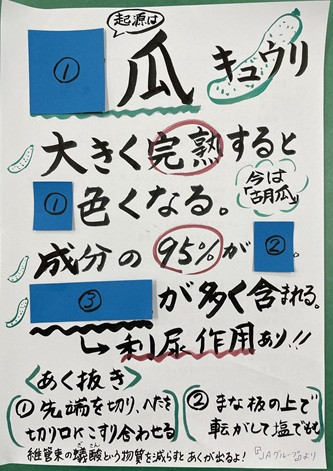 起源は
① 瓜 キュウリ
大きく完熟すると
① 色くなる。
今は
「胡瓜」
成分の95%が ② 。
③ が多く含まれる。
↳ 利尿作用あり!!
〈あく抜き〉
① 先端を切り、ヘタを
切り口にこすり合わせる
② まな板の上で
転がして塩でもむ
維管束の蟻酸という物質を減らすとあくが出るよ!
ぎさん